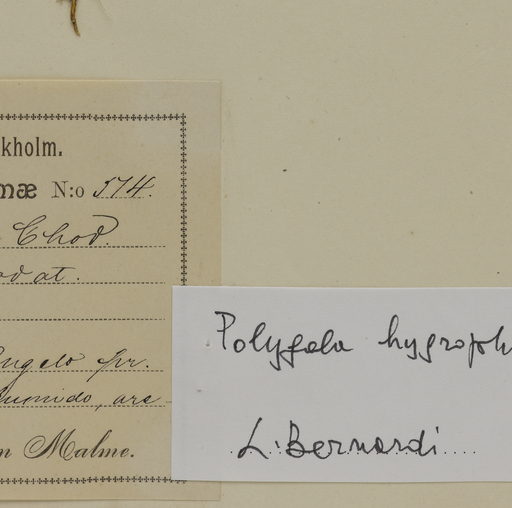 kholm.
mæ N:o 574.
Chod.
odat.
ngelo pr.
humido, are
n Malme.
Polygala hygroph
L. Bernardi